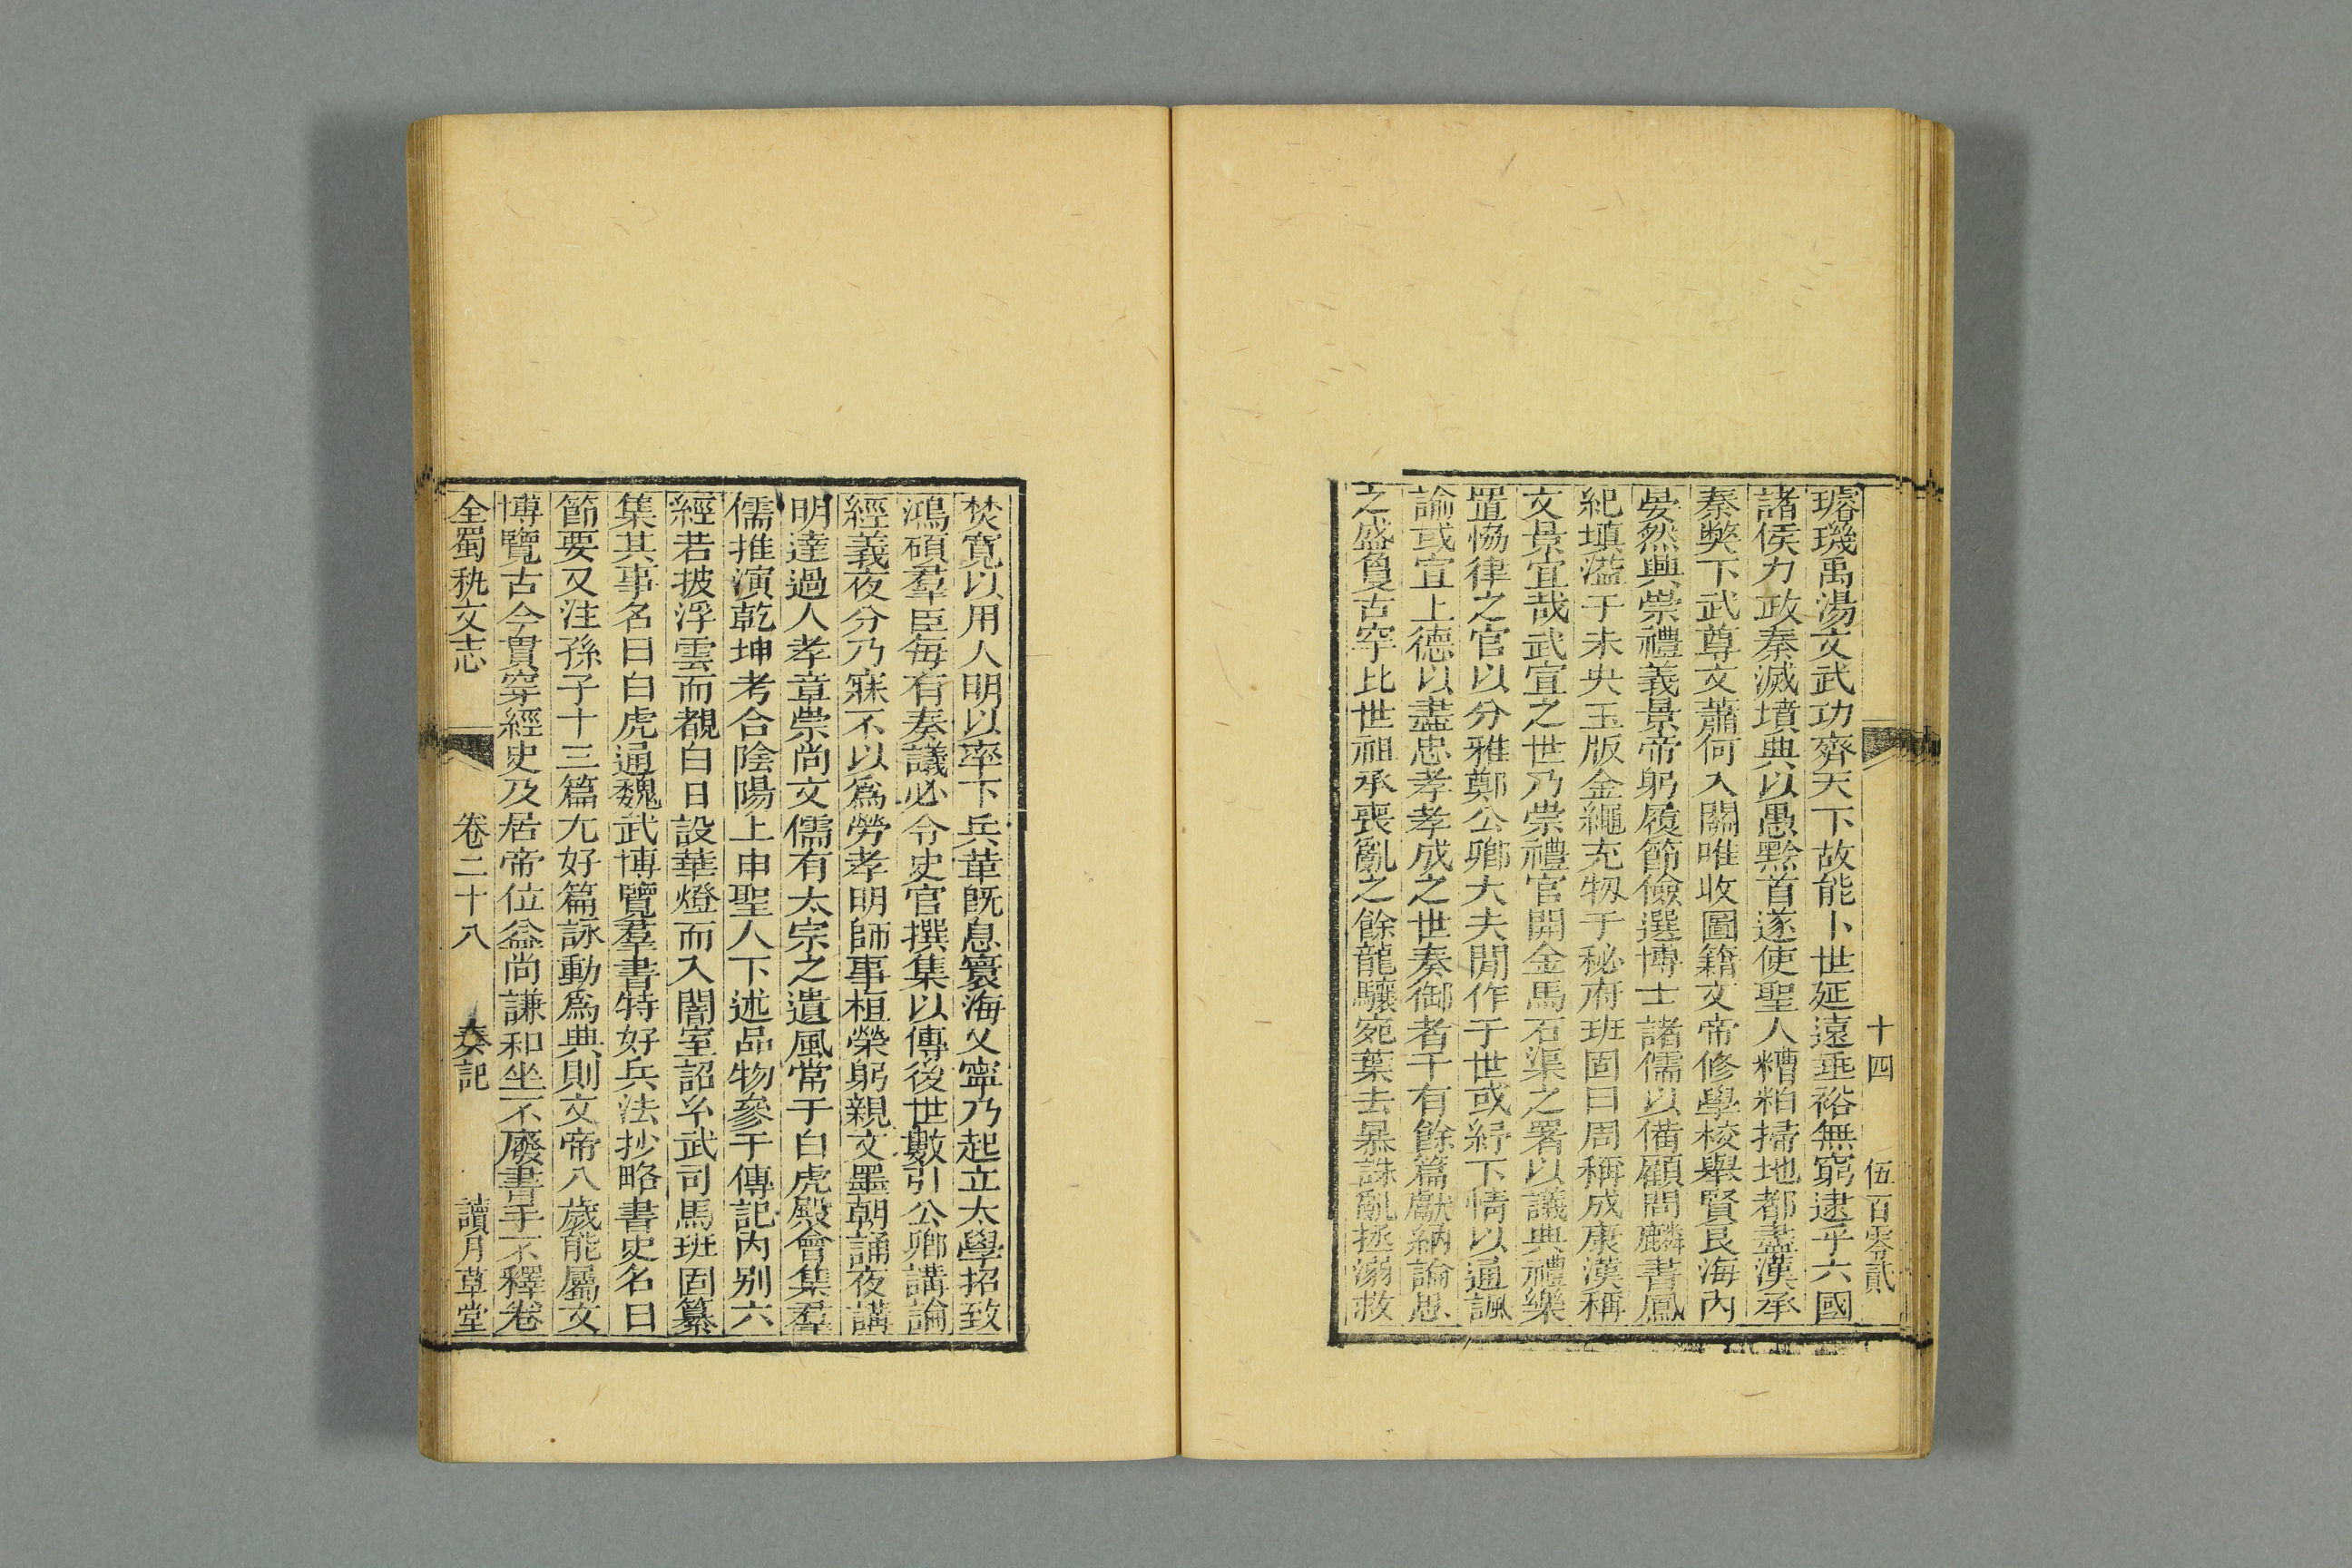 十四 伍百零貳
璿璣禹湯文武功齊天下故能卜世延遠垂裕無窮逮乎六國
諸侯力政秦滅墳典以愚黔首遂使聖人糟粕掃地都盡漢承
秦獘下武尊文蕭何入關唯收圖籍文帝修學校舉賢良海內
晏然興崇禮義景帝躬履節儉選博士諸儒以備顧問麟書鳳
紀塡溢于未央玉版金繩充牣于秘府班固曰周稱成康漢稱
文景宜哉武宣之世乃崇禮官開金馬石渠之署以議典禮樂
置恊律之官以分雅鄭公卿大夫閒作于世或紓下情以通諷
諭或宣上德以盡忠孝孝成之世奏御者千有餘篇獻納論思
之盛敻古罕比世祖承喪亂之餘龍驤宛葉去暴誅亂拯溺救
焚寬以用人明以率下兵革旣息寰海乂寧乃起立太學招致
鴻碩羣臣每有奏議必令史官撰集以傳後世數引公卿講論
經義夜分乃寐不以爲勞孝明師事桓榮躬親文墨朝誦夜講
明達過人孝章崇尚文儒有太宗之遺風常于白虎殿會集羣
儒推演乾坤考合陰陽上申聖人下述品物參于傳記內别六
經若披浮雲而覩白日設華燈而入闇室詔糸武司馬班固纂
集其事名曰白虎通魏武博覽羣書特好兵法抄略書史名曰
節要又注孫子十三篇尤好篇詠動爲典則文帝八歲能屬文
博覽古今貫穿經史及居帝位益尚謙和坐不廢書手不釋卷
全蜀秇文志 卷二十八 奏記 讀月草堂